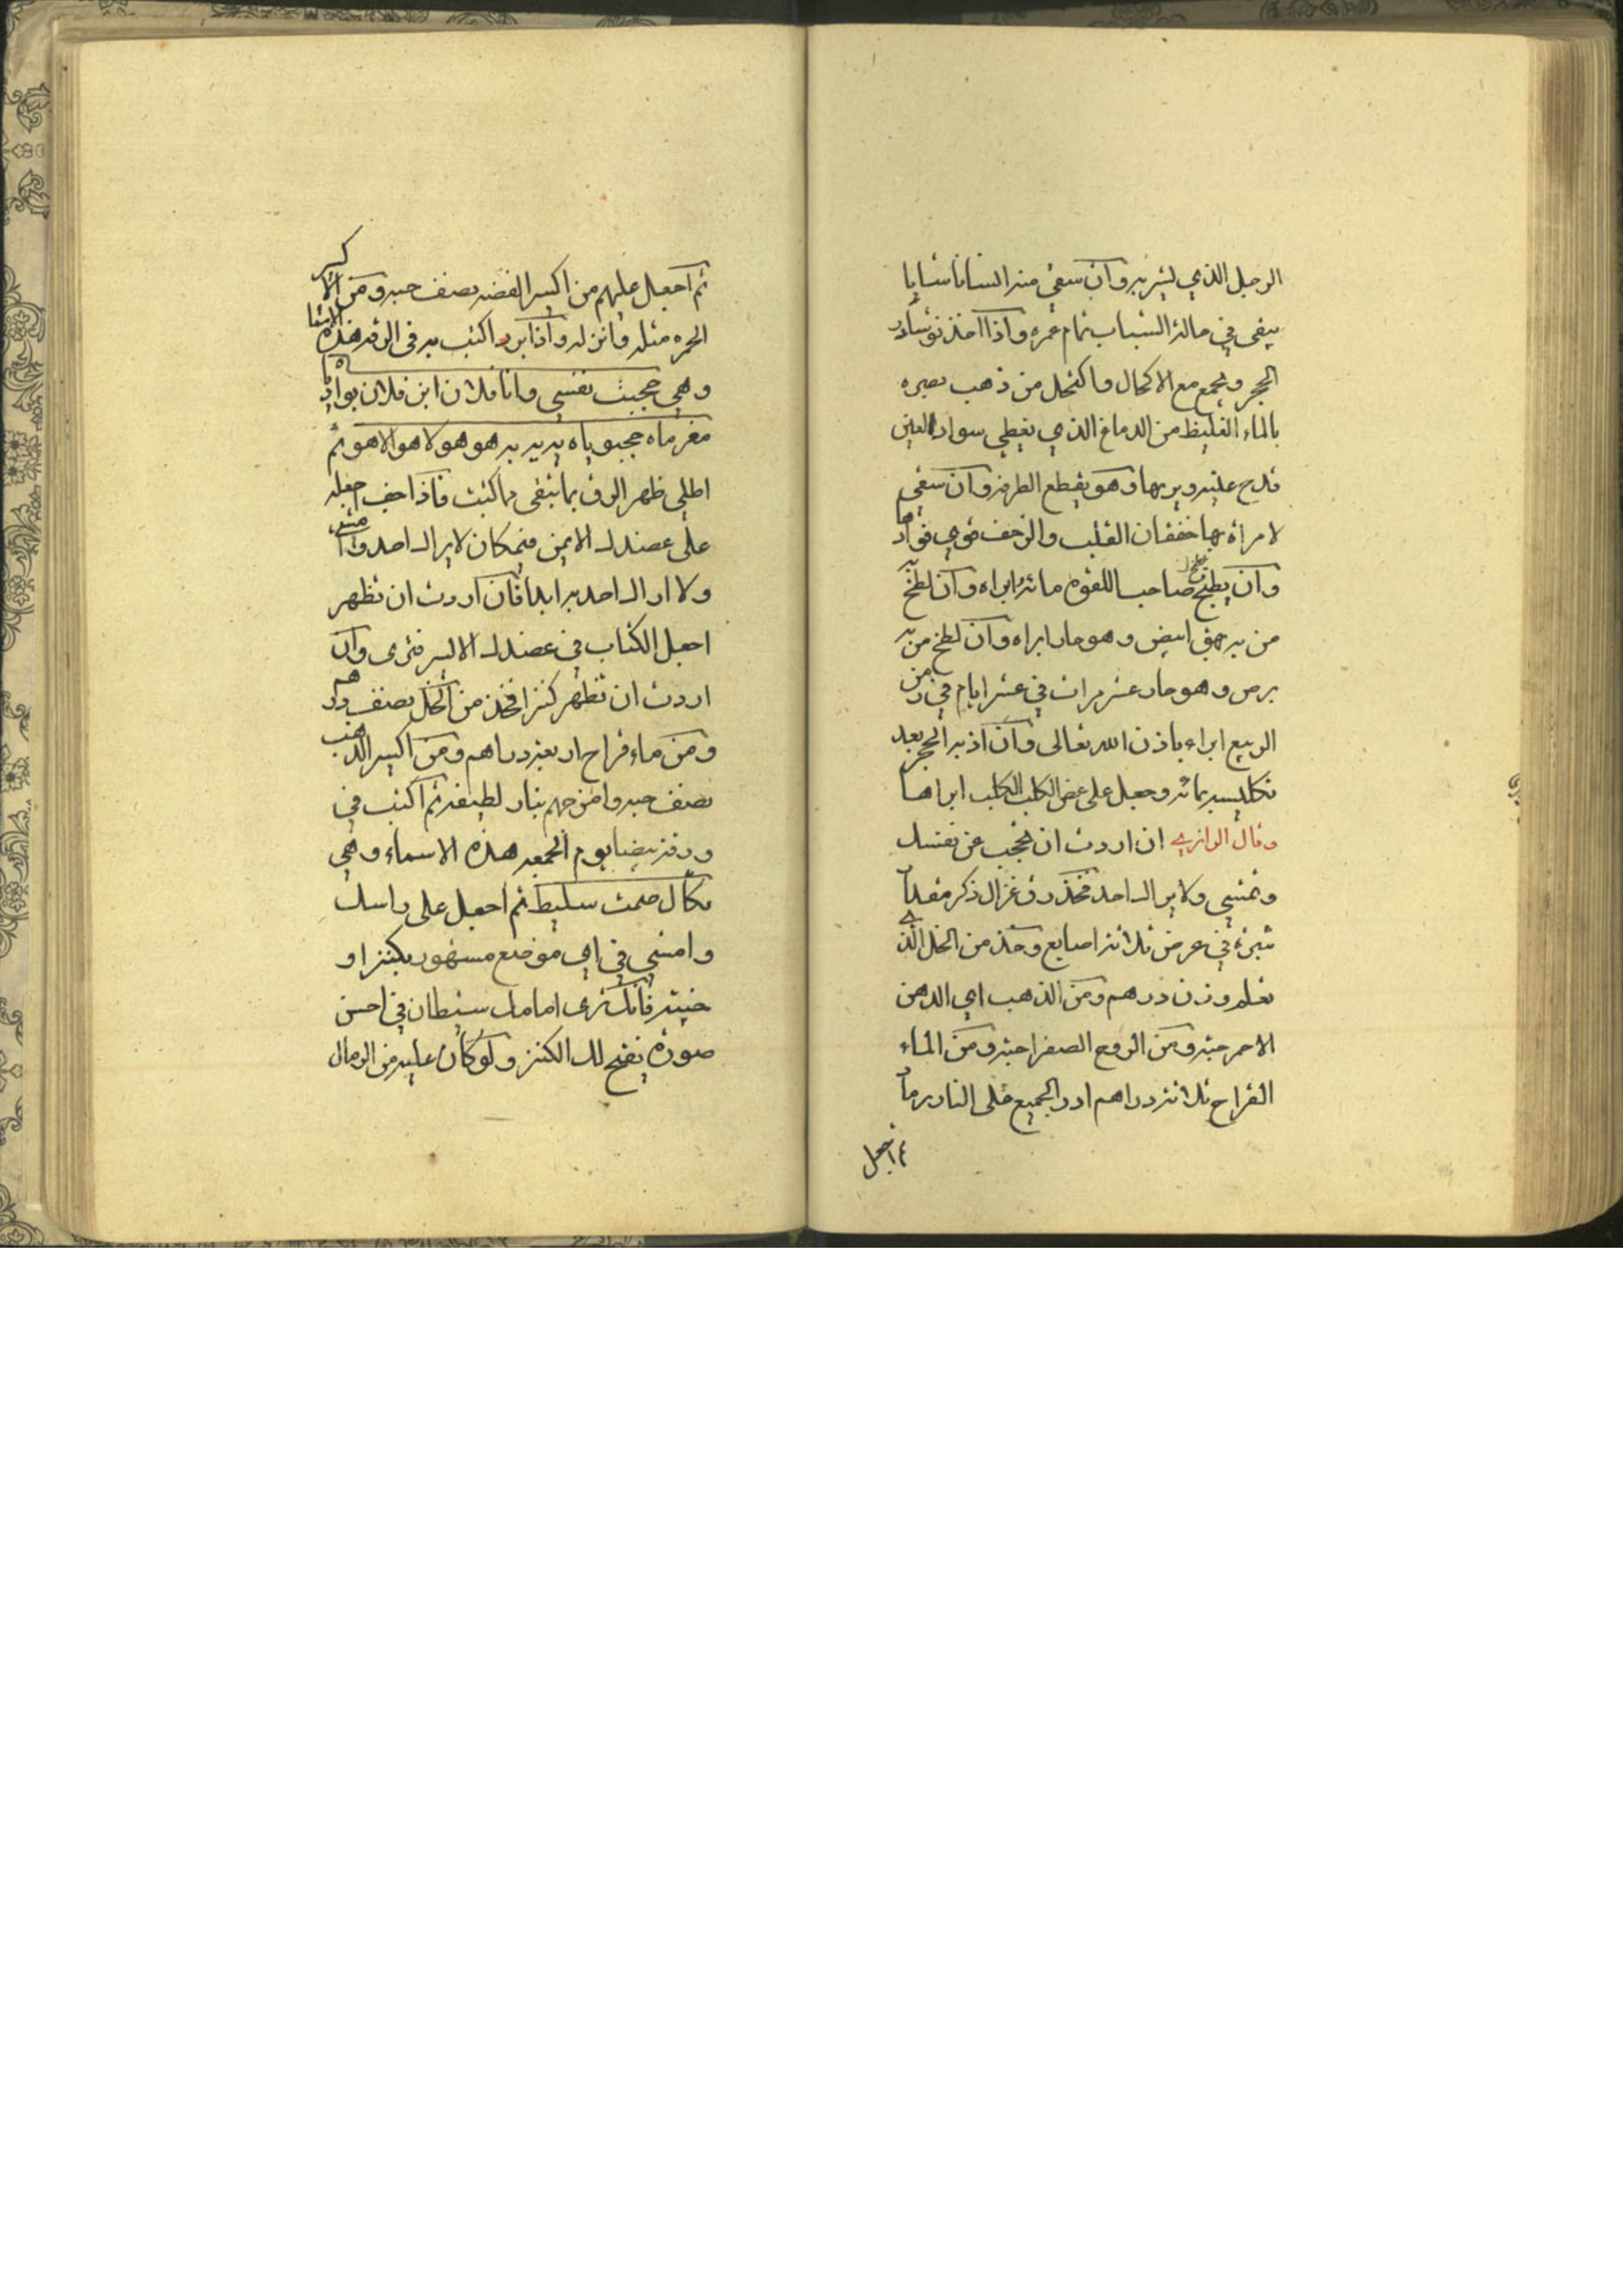 الرجل الذي يشربه وان سقي منه انسانا شابا
يبقى في حالة الشباب تمام عمره واذا اخذ نوشادر
الحجر وجمع مع الاكحال واكتحل من ذهب بصره
بالماء الغليظ من الدماغ الذي يغطي سواد العين
قدح عليه ويريها وهو يقطع الطرفه وان سقي
لامراة بها خفقان القلب والرجف قوي فوادها
وان يطبخ صاحب اللقوه مائه ابراه وان لطخ
من به بهق ابيض وهو حار ابراه وان لطخ من به
برص وهو حار عشر مرات في عشر ايام في زمن
الربيع ابراه باذن الله تعالى وان اذيب الحجر بعد
تكليسه بمائه وجعل على عض الكلب الكلب ابراها
وقال الرازي ان اردت ان تحجب عن نفسك
وتمشي ولا يراك احد فخذ رق غزال ذكر مقدار
شبر في عرض ثلاثة اصابع وخذ من الخل الذي
تعلم وزن درهم ومن الذهب اي الدهن
الاحمر حبه ومن الروح الصفرا حبه ومن الماء
القراح ثلاثة دراهم ادر الجميع على النار
ثم اجعل
ثم اجعل عليهم من اكسير الفضه نصف حبه ومن الاكسير
الحمره مثله وانزله واذا برد اكتب به في الرق هذه الاسما
وهي حجبت نفسي وانا فلان ابن فلان
هو هو لا هو الا هو ثم
اطلي ظهر الرق بما يبقى مما كتبت فاذا جف اجعله
على عضدك الايمن فيمكان لا يراك احد وامشي
ولا اراك احد به ابدا فان اردت ان تظهر
اجعل الكتاب في عضدك الايسر فترى وان
اردت ان تظهر كنزا فخذ من الخل نصف درهم
ومن ماء قراح اربعة دراهم ومن اكسير الذهب
نصف حبه وامزجهم بنار لطيفه ثم اكتب في
ورقه بيضا يوم الجمعه هذه الاسماء وهي
سليط ثم اجعل على راسك
وامشي في اي موضع مشهور بكنز او
خبيئه فانك ترى امامك شيطان في احسن
صورة يفتح لك الكنز ولو كان عليه من الرمال